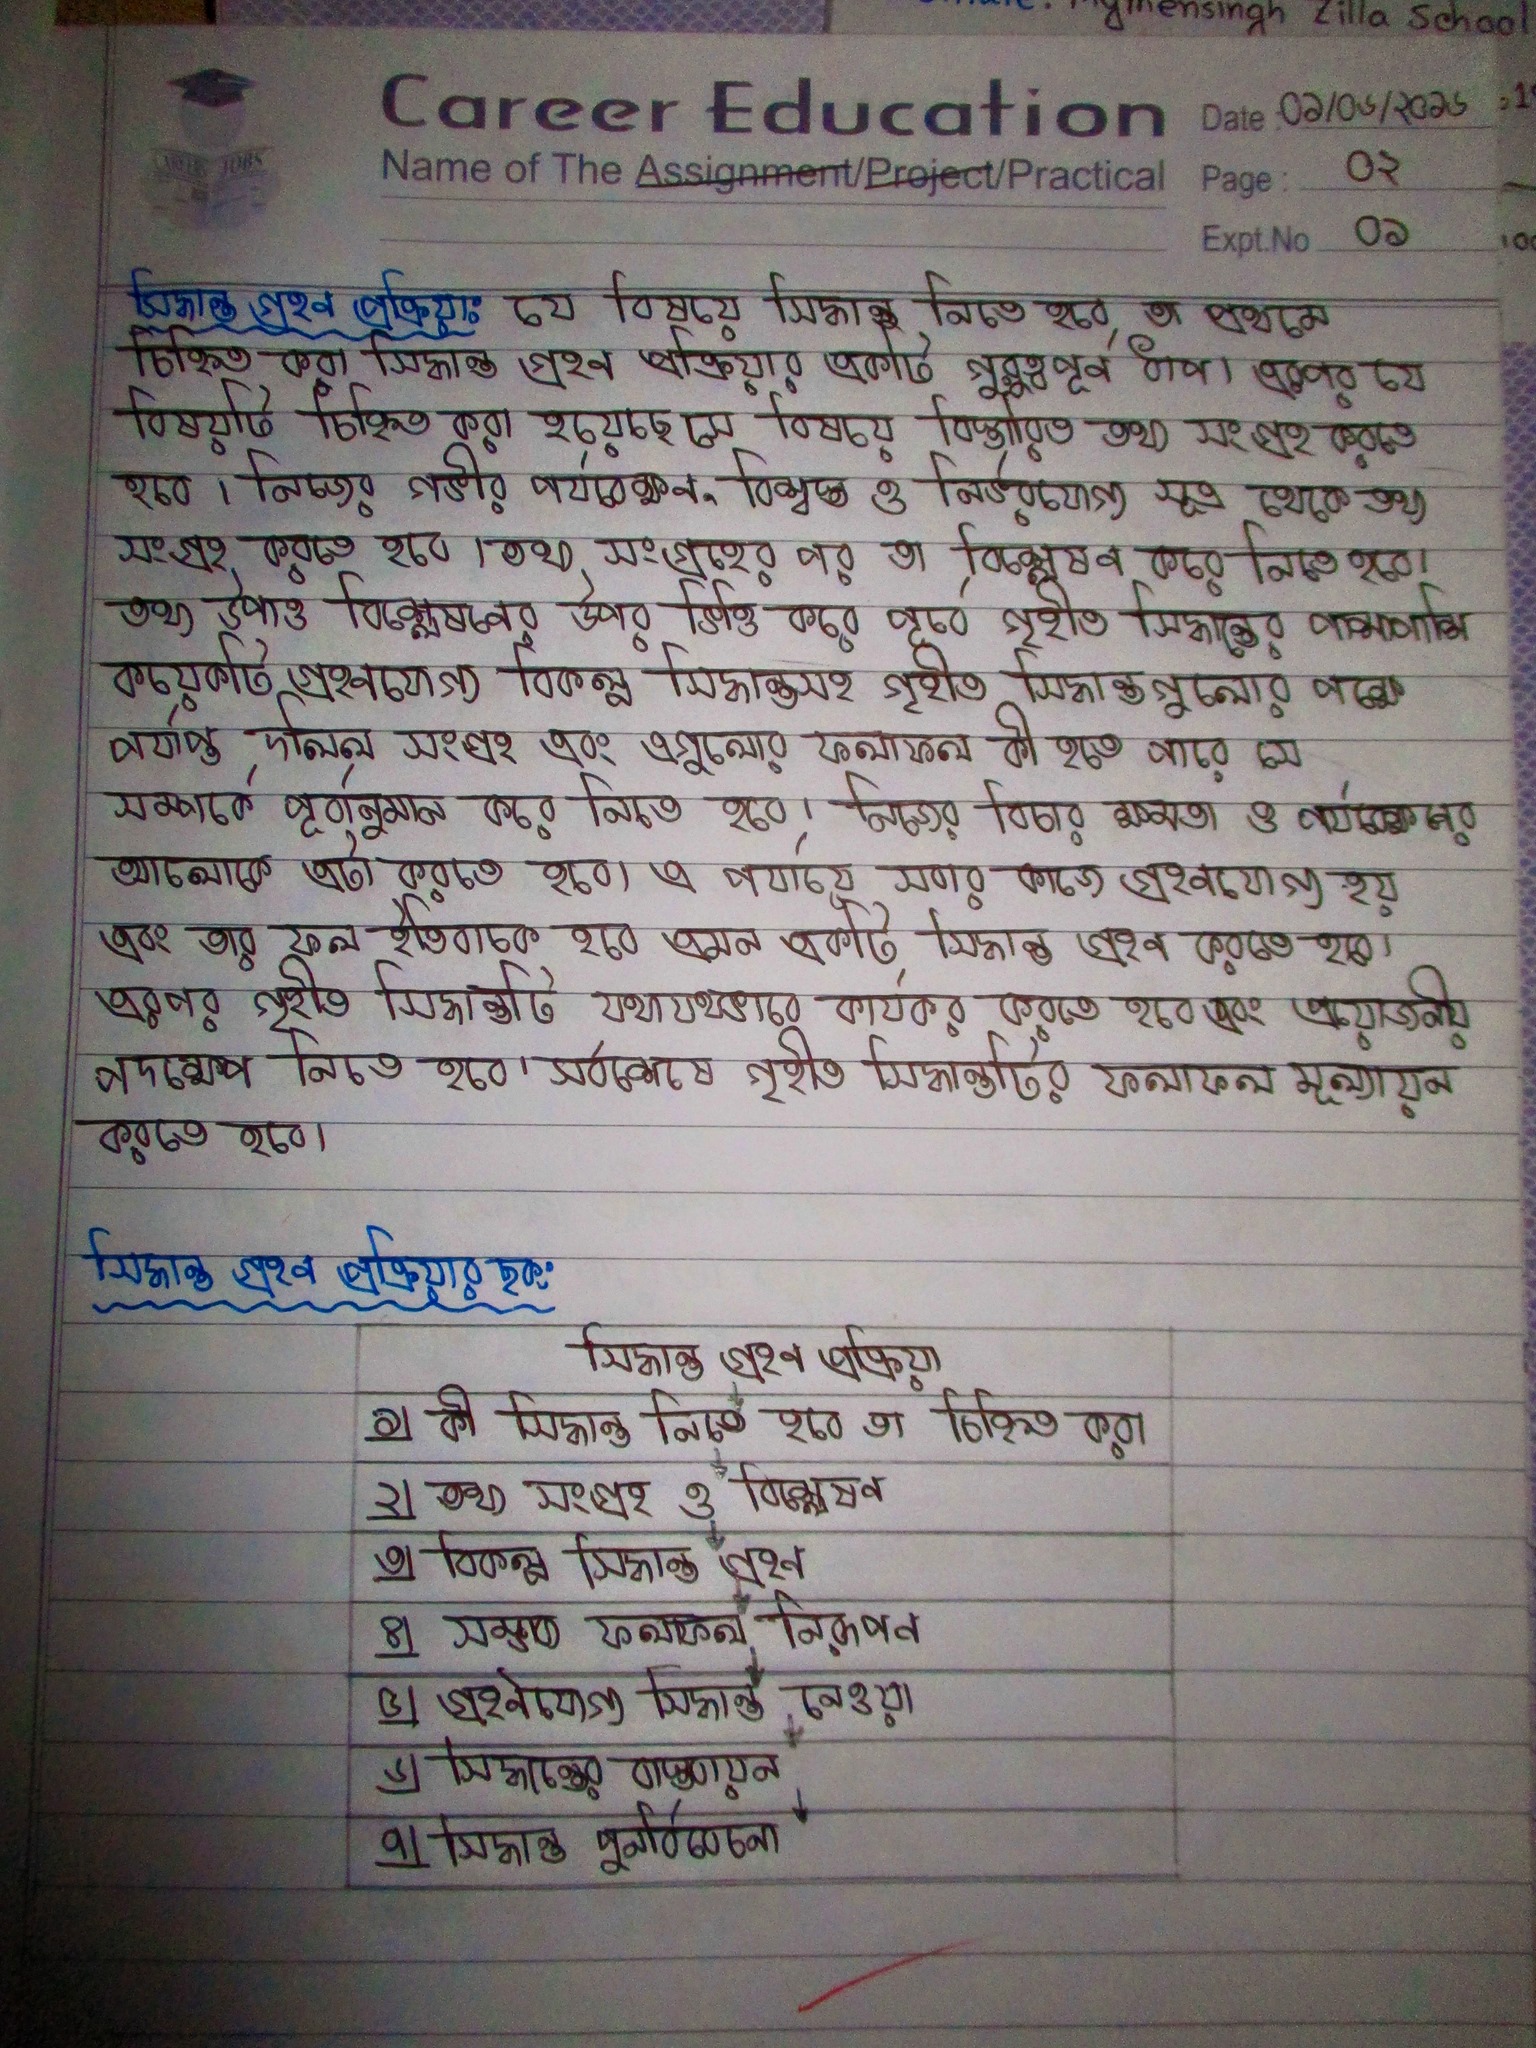 Mymensingh Zilla School
Career Education
Name of The Assignment/Project/Practical
Date : ০১/০৬/২০১৬
Page : ০২
Expt.No ০১
সিদ্ধান্ত গ্রহণ প্রক্রিয়াঃ যে বিষয়ে সিদ্ধান্ত নিতে হবে, তা প্রথমে
চিহ্নিত করা সিদ্ধান্ত গ্রহণ প্রক্রিয়ার একটি গুরুত্বপূর্ণ ধাপ। এরপর যে
বিষয়টি চিহ্নিত করা হয়েছে সে বিষয়ে বিস্তারিত তথ্য সংগ্রহ করতে
হবে। নিজের গভীর পর্যবেক্ষণ, বিশ্বস্ত ও নির্ভরযোগ্য সূত্র থেকে তথ্য
সংগ্রহ করতে হবে। তথ্য সংগ্রহের পর তা বিশ্লেষণ করে নিতে হবে।
তথ্য উপাত্ত বিশ্লেষণের উপর ভিত্তি করে পূর্বে গৃহীত সিদ্ধান্তের পাশাপাশি
কয়েকটি গ্রহণযোগ্য বিকল্প সিদ্ধান্তসহ গৃহীত সিদ্ধান্তগুলোর পক্ষে
পর্যাপ্ত দলিল সংগ্রহ এবং এগুলোর ফলাফল কী হতে পারে সে
সম্পর্কে পূর্বানুমান করে নিতে হবে। নিজের বিচার ক্ষমতা ও পর্যবেক্ষণের
আলোকে এটা করতে হবে। এ পর্যায়ে সবার কাছে গ্রহণযোগ্য হয়
এবং তার ফল ইতিবাচক হবে এমন একটি সিদ্ধান্ত গ্রহণ করতে হবে।
এরপর গৃহীত সিদ্ধান্তটি যথাযথভাবে কার্যকর করতে হবে এবং প্রয়োজনীয়
পদক্ষেপ নিতে হবে। সর্বশেষে গৃহীত সিদ্ধান্তটির ফলাফল মূল্যায়ন
করতে হবে।
সিদ্ধান্ত গ্রহণ প্রক্রিয়ার ছকঃ
সিদ্ধান্ত গ্রহণ প্রক্রিয়া
১) কী সিদ্ধান্ত নিতে হবে তা চিহ্নিত করা
২) তথ্য সংগ্রহ ও বিশ্লেষণ
৩) বিকল্প সিদ্ধান্ত গ্রহণ
৪) সম্ভাব্য ফলাফল নিরূপণ
৫) গ্রহণযোগ্য সিদ্ধান্ত নেওয়া
৬) সিদ্ধান্তের বাস্তবায়ন
৭) সিদ্ধান্ত পুনর্বিবেচনা